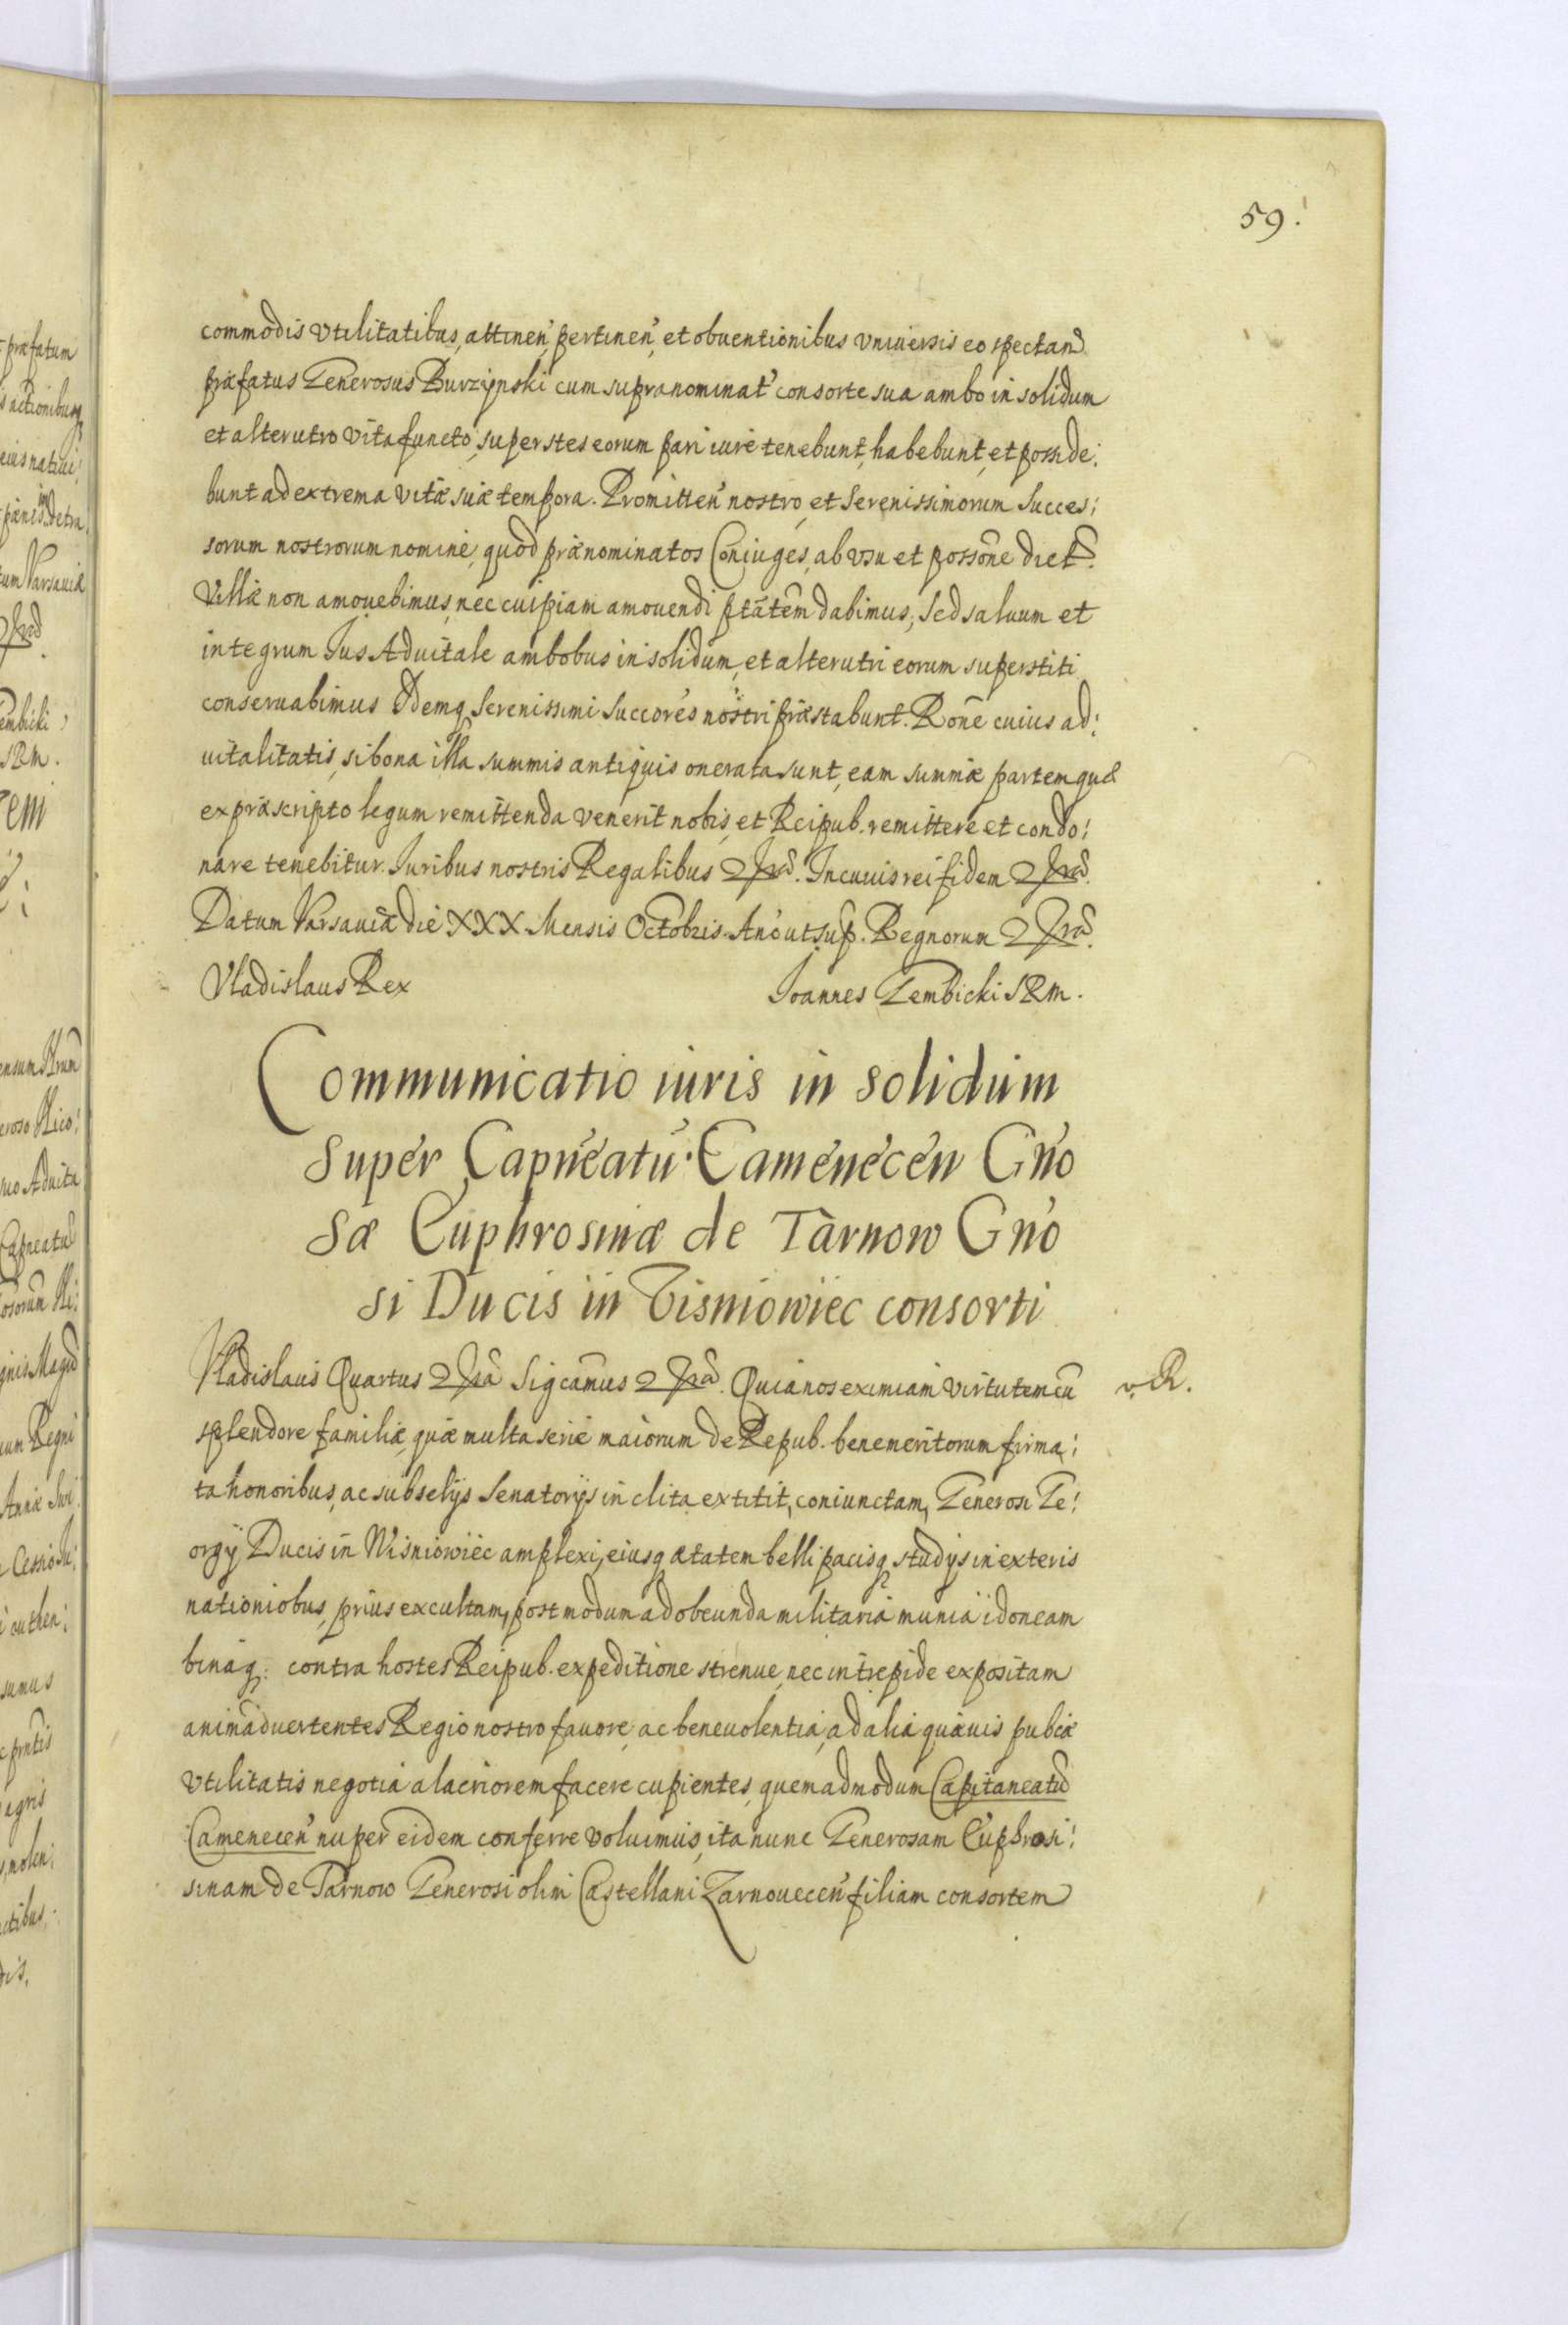 59.
commodis vtilitatibus, attinen̄, pertinen̄, et obuentionibus vniuersis eo spectan̄d.
præfatus Generosus Burzynski cum supranominat' consorte sua ambo in solidum
et alterutro vita functo, superstes eorum pari iure tenebunt, habebunt, et posside:
bunt ad extrema vitæ suæ tempora. Promitten̄ nostro, et Serenissimorum Succes:
sorum nostrorum nomine, quod prænominatos Coniuges, ab vsu et possōne dict.
Villæ non amouebimus, nec cuipiam amouendi ptātem dabimus, sed saluum et
integrum Ius Aduitale ambobus in solidum, et alterutri eorum superstiti
conseruabimus Idemq Serenissimi Succores nostri præstabunt. Rōne cuius ad:
uitalitatis, si bona illa summis antiquis onerata sunt, eam summæ partem quæ
ex præscripto legum remittenda venerit nobis, et Reipub. remittere et condo:
nare tenebitur. Iuribus nostris Regalibus In cuius rei fidem
Datum Varsauiæ die XXX Mensis Octobris. Ano ut sup. Regnorum
Vladislaus Rex Joannes Gembicki SRM.
Communicatio iuris in solidum
super Capneatū Camenecen Gn̄o
sæ Euphrosinæ de Tarnow Gn̄o
si Ducis in Visniowiec consorti
Vladislaus Quartus Sigcamus Quia nos eximiam virtutem cū v. R.
splendore familiæ, quæ multa serie maiorum de Repub. benemeritorum firma:
ta honoribus, ac subselijs Senatorijs inclita extitit, coniunctam, Generosi Ge:
orgij Ducis in Wisniowiec amplexi, eiusq ætatem belli pacisq studijs in exteris
nationiobus, prius excultam, postmodum ad obeunda militaria munia idoneam
binaq. contra hostes Reipub. expeditione strenue, nec intrepide expositam
animaduertentes Regio nostro fauore, ac beneuolentia, ad alia quævis pubcæ
vtilitatis negotia alacriorem facere cupientes, quemadmodum Capitaneatū
Camenecen̄ nuper eidem conferre voluimus, ita nunc Generosam Euphrosi:
sinam de Tarnow Generosi olim Castellani Zarnouecen̄ filiam consortem